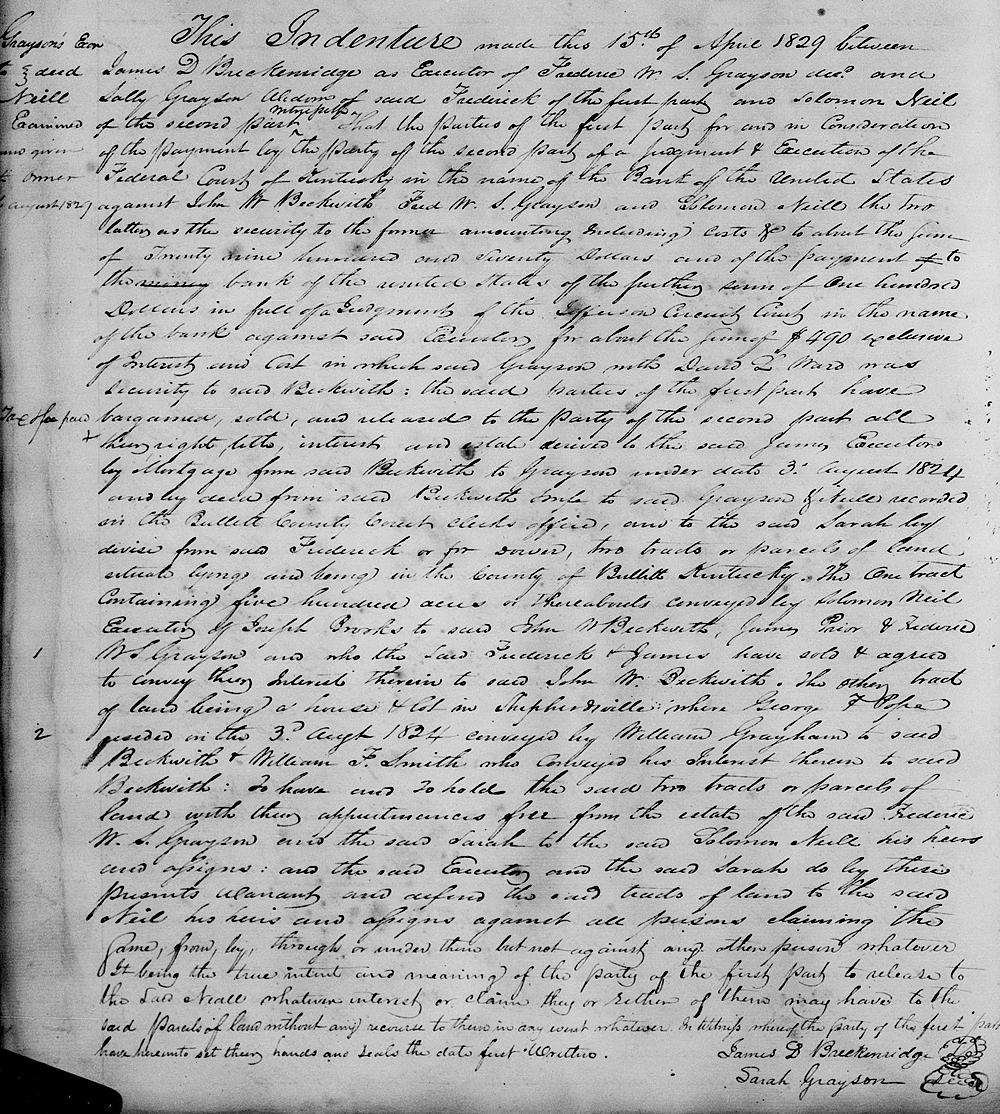 Grayson's Exor
to } deed
Neill
Examined
and given
to owner
August 1829
This Indenture made this 15th of April 1829 between
James D Breckenridge as Executor of Frederic W. S. Grayson decd and
Sally Grayson Widow of said Frederick of the first part and Solomon Neil
of the second part witnesseth That the parties of the first part for and in Consideration
of the payment by the party of the second part of a Judgment & Execution of the
Federal Court of Kentucky in the name of the Bank of the United States
against John W Beckwith Fred W. S. Grayson and Solomon Neill the two
latter as the security to the former amounting including costs &c to about the sum
of Twenty nine hundred and seventy Dollars and of the payment of to
the money bank of the united States of the further sum of One hundred
Dollars in full of a Judgment of the Jefferson Circuit Court in the name
of the bank against said Executor for about the sum of $490 exclusive
of Interest and Cost in which said Grayson with David L Ward was
security to said Beckwith: the said parties of the first part have
Tax & fee paid
bargained, sold, and released to the party of the second part all
their right, title, interest and estate derived to the said James Executor
by Mortgage from said Beckwith to Grayson under date 3d August 1824
and by deed from said Beckwith to said Grayson & Neill recorded
in the Bullitt County Court clerks office, and to the said Sarah by
divise from said Frederick or for dower, two tracts or parcels of land
situate lying and being in the County of Bullitt Kentucky. The One tract
Containing five hundred acres or thereabouts conveyed by Solomon Neil
Executor of Joseph Brooks to said John W Beckwith, James Prior & Frederic
1
W S Grayson and who the said Frederick & James have sold & agreed
to convey their Interest therein to said John W. Beckwith. The other tract
of land being a house & lot in Shepherdsville where George F Pope
2
resided on the 3d Augt 1824 conveyed by William Grayham to said
Beckwith & William F Smith who conveyed his Interest therein to said
Beckwith: To have and To hold the said two tracts or parcels of
land with their appurtinances free from the estate of the said Frederic
W. S. Grayson and the said Sarah to the said Solomon Neill his heirs
and assigns: and the said Executor and the said Sarah do by these
presents warrant and defend the said tracts of land to the said
Neil his heirs and assigns against all persons claiming the
same, from, by, through or under them but not against any other person whatever
It being the true intent and meaning of the party of the first part to release to
the said Neall whatever interest or claim they or either of them may have to the
said parcels of land without any recourse to them in any event whatever. In Witness whereof the party of the first part
have hereunto set their hands and seals the date first Written.
James D Breckenridge seal
Sarah Grayson seal